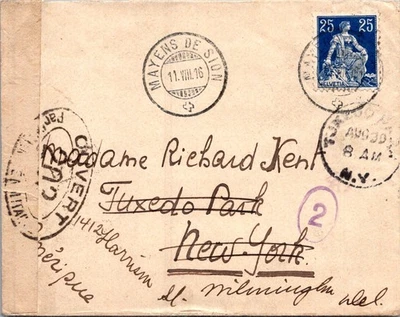 MAYENS DE SION
11.VIII.16
25 25
HELVETIA
TUXEDO PARK
AUG 30
8 AM
N.Y.
OUVERT
Madame Richard Kent
Tuxedo Park
New York
2
1412 Harrison
St. Wilmington Del.
Amérique